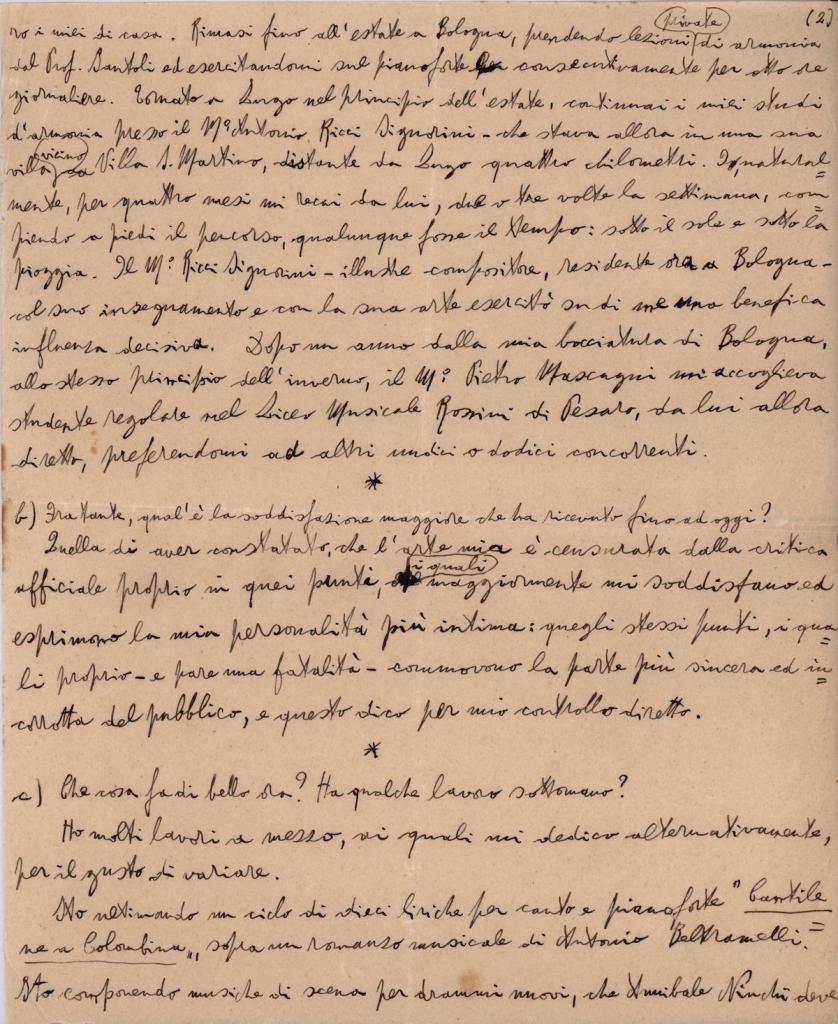 (2)
ro i miei di casa. Rimasi fino all'estate a Bologna, prendendo lezioni private di armonia
dal Prof. Bantoli ed esercitandomi sul pianoforte consecutivamente per otto ore
giornaliere. Tornato a Lugo nel principio dell'estate, continuai i miei studi
d'armonia presso il M.º Antonio Ricci Signorini - che stava allora in una sua
villa vicino a Villa S. Martino, distante da Lugo quattro chilometri. Io, natural=
mente, per quattro mesi mi recai da lui, due o tre volte la settimana, com=
piendo a piedi il percorso, qualunque fosse il tempo: sotto il sole e sotto la
pioggia. Il M.º Ricci Signorini - illustre compositore, residente ora a Bologna -
col suo insegnamento e con la sua arte esercitò su di me una benefica
influenza decisiva. Dopo un anno dalla mia bocciatura di Bologna,
allo stesso principio dell'inverno, il M.º Pietro Mascagni mi accoglieva
studente regolare nel Liceo Musicale Rossini di Pesaro, da lui allora
diretto, preferendomi ad altri undici o dodici concorrenti.
*
b) Fra tante, qual'è la soddisfazione maggiore che ha ricevuto fino ad oggi?
Quella di aver constatato, che l'arte mia è censurata dalla critica
ufficiale proprio in quei punti, i quali maggiormente mi soddisfano ed
esprimono la mia personalità più intima: quegli stessi punti, i qua=
li proprio - e pare una fatalità - commovono la parte più sincera ed in=
corrotta del pubblico, e questo dico per mio controllo diretto.
*
c) Che cosa fa di bello ora? Ha qualche lavoro sottomano?
Ho molti lavori a mezzo, ai quali mi dedico alternativamente,
per il gusto di variare.
Sto ultimando un ciclo di dieci liriche per canto e pianoforte "Cantile=
ne a Colombina", sopra un romanzo musicale di Antonio Beltramelli.
Sto componendo musiche di scena per drammi nuovi, che Annibale Ninchi deve